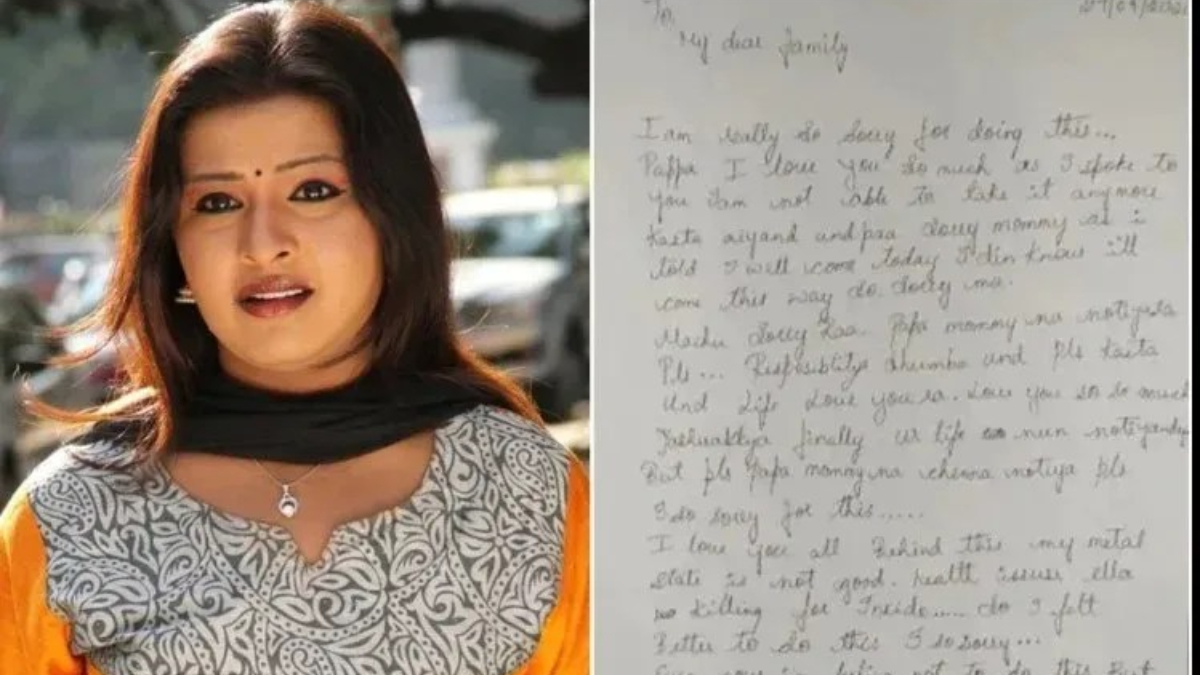 To,
My dear family
I am really so sorry for doing this...
Pappa I love you so much as I spoke to
you I am not able to take it anymore
Kasta and paa sorry mommy as i
told I will come today I din know i'll
come this way so sorry ma.
Machu Sorry Papa mommy na
Pls... and pls Kasta
Und Life Love you ra. Love you so so much
finally ur life nun
But pls Papa mommy na chenna notiya pls
I so sorry for this.....
I love you all Behind this my metal
state is not good. healtt issuse ella
killing for Inside.... so I felt
Better to do this I so sorry...
not to do this But